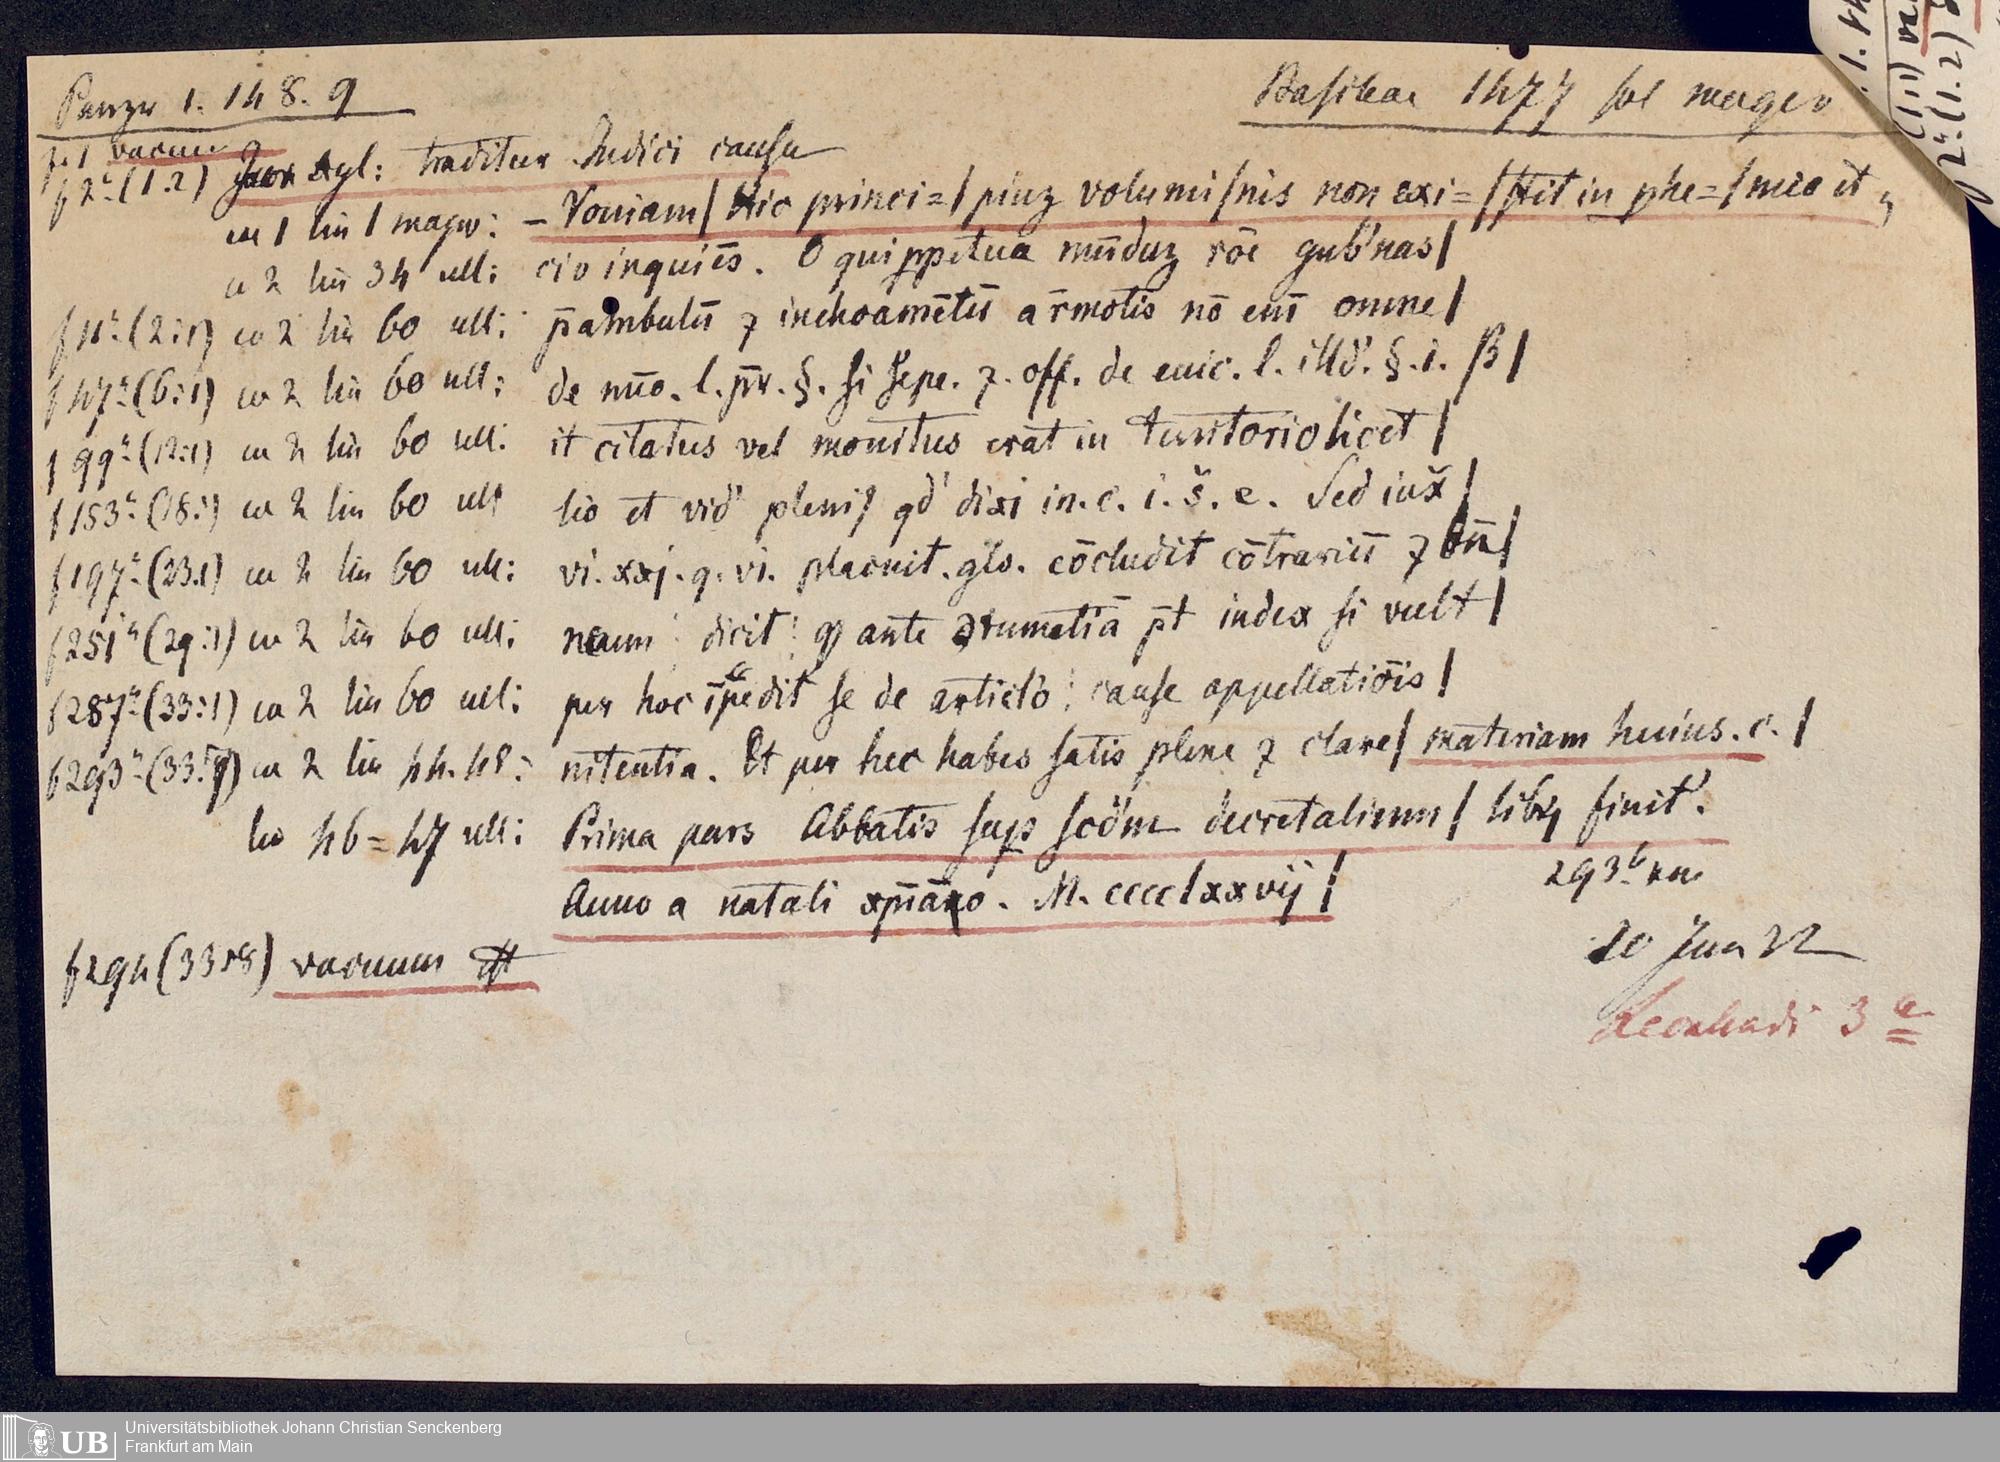 Panzer 1. 148. 9
Basileae 1477 fol magio
f 1 vacuu
f 2ª (1.2) traditur Judici causa
co 1 lin 1 major: – Voniam / hic princi= / piuz volumi / nis non exi= / stit in phe= / mio et
co 2 lin 34 ult: cio inquiēs. O qui ppetua mūduz rōe gub'nas /
f 11ª (2:1) co 2 lin 60 ult: p̄ambulū ⁊ inchoamētū no em̄ omne /
f 47ª (6:1) co 2 lin 60 ult: de nuo. l. p̄r. §. si sepe. ⁊. off. de euic. l. illd'. §. i. ß /
f 99ª (12:1) co 2 lin 60 ult: it citatus vel monitus erat in territorio licet /
f 153ª (18:1) co 2 lin 60 ult lio et vid' pleni9 qd' dixi in. c. i. š. e. Sed iux̄ /
f 197ª (23.1) co 2 lin 60 ult: vi. xxj. q. vi. placuit. glo. cōcludit cōtrariū ⁊ bn̄ /
f 251ª (29:1) co 2 lin 60 ult: dicit: ante p̄t iudex si vult /
f 287ª (33:1) co 2 lin 60 ult: per hoc īpedit se de articlo: cause appellatiōis /
f 293ª (33:9) co 2 lin 44. 45: nitentia. Et per hec habes satis plene ⁊ clare / materiam huius. c. /
lio 46=47 ult: Prima pars Abbatis sup scd'm decretalium / libꝝ finit'.
Anno a natali xp̄iāo. M. cccclxxvij /
293b vac
f 294 (33:8) vacuum
20 Jun 22
Leonhardi 3 a
Universitätsbibliothek Johann Christian Senckenberg
Frankfurt am Main
UB